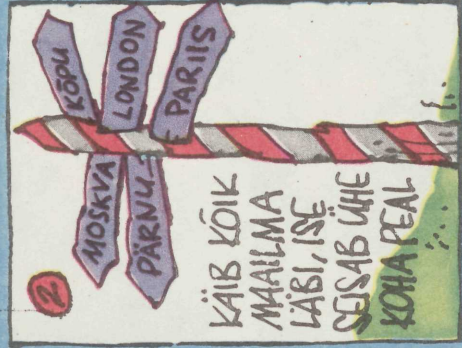 2
KÕPU
LONDON
PARIIS
MOSKVA
PÄRNU
KÄIB KÕIK
MAAILMA
LÄBI, ISE
SEISAB ÜHE
KOHA PEAL